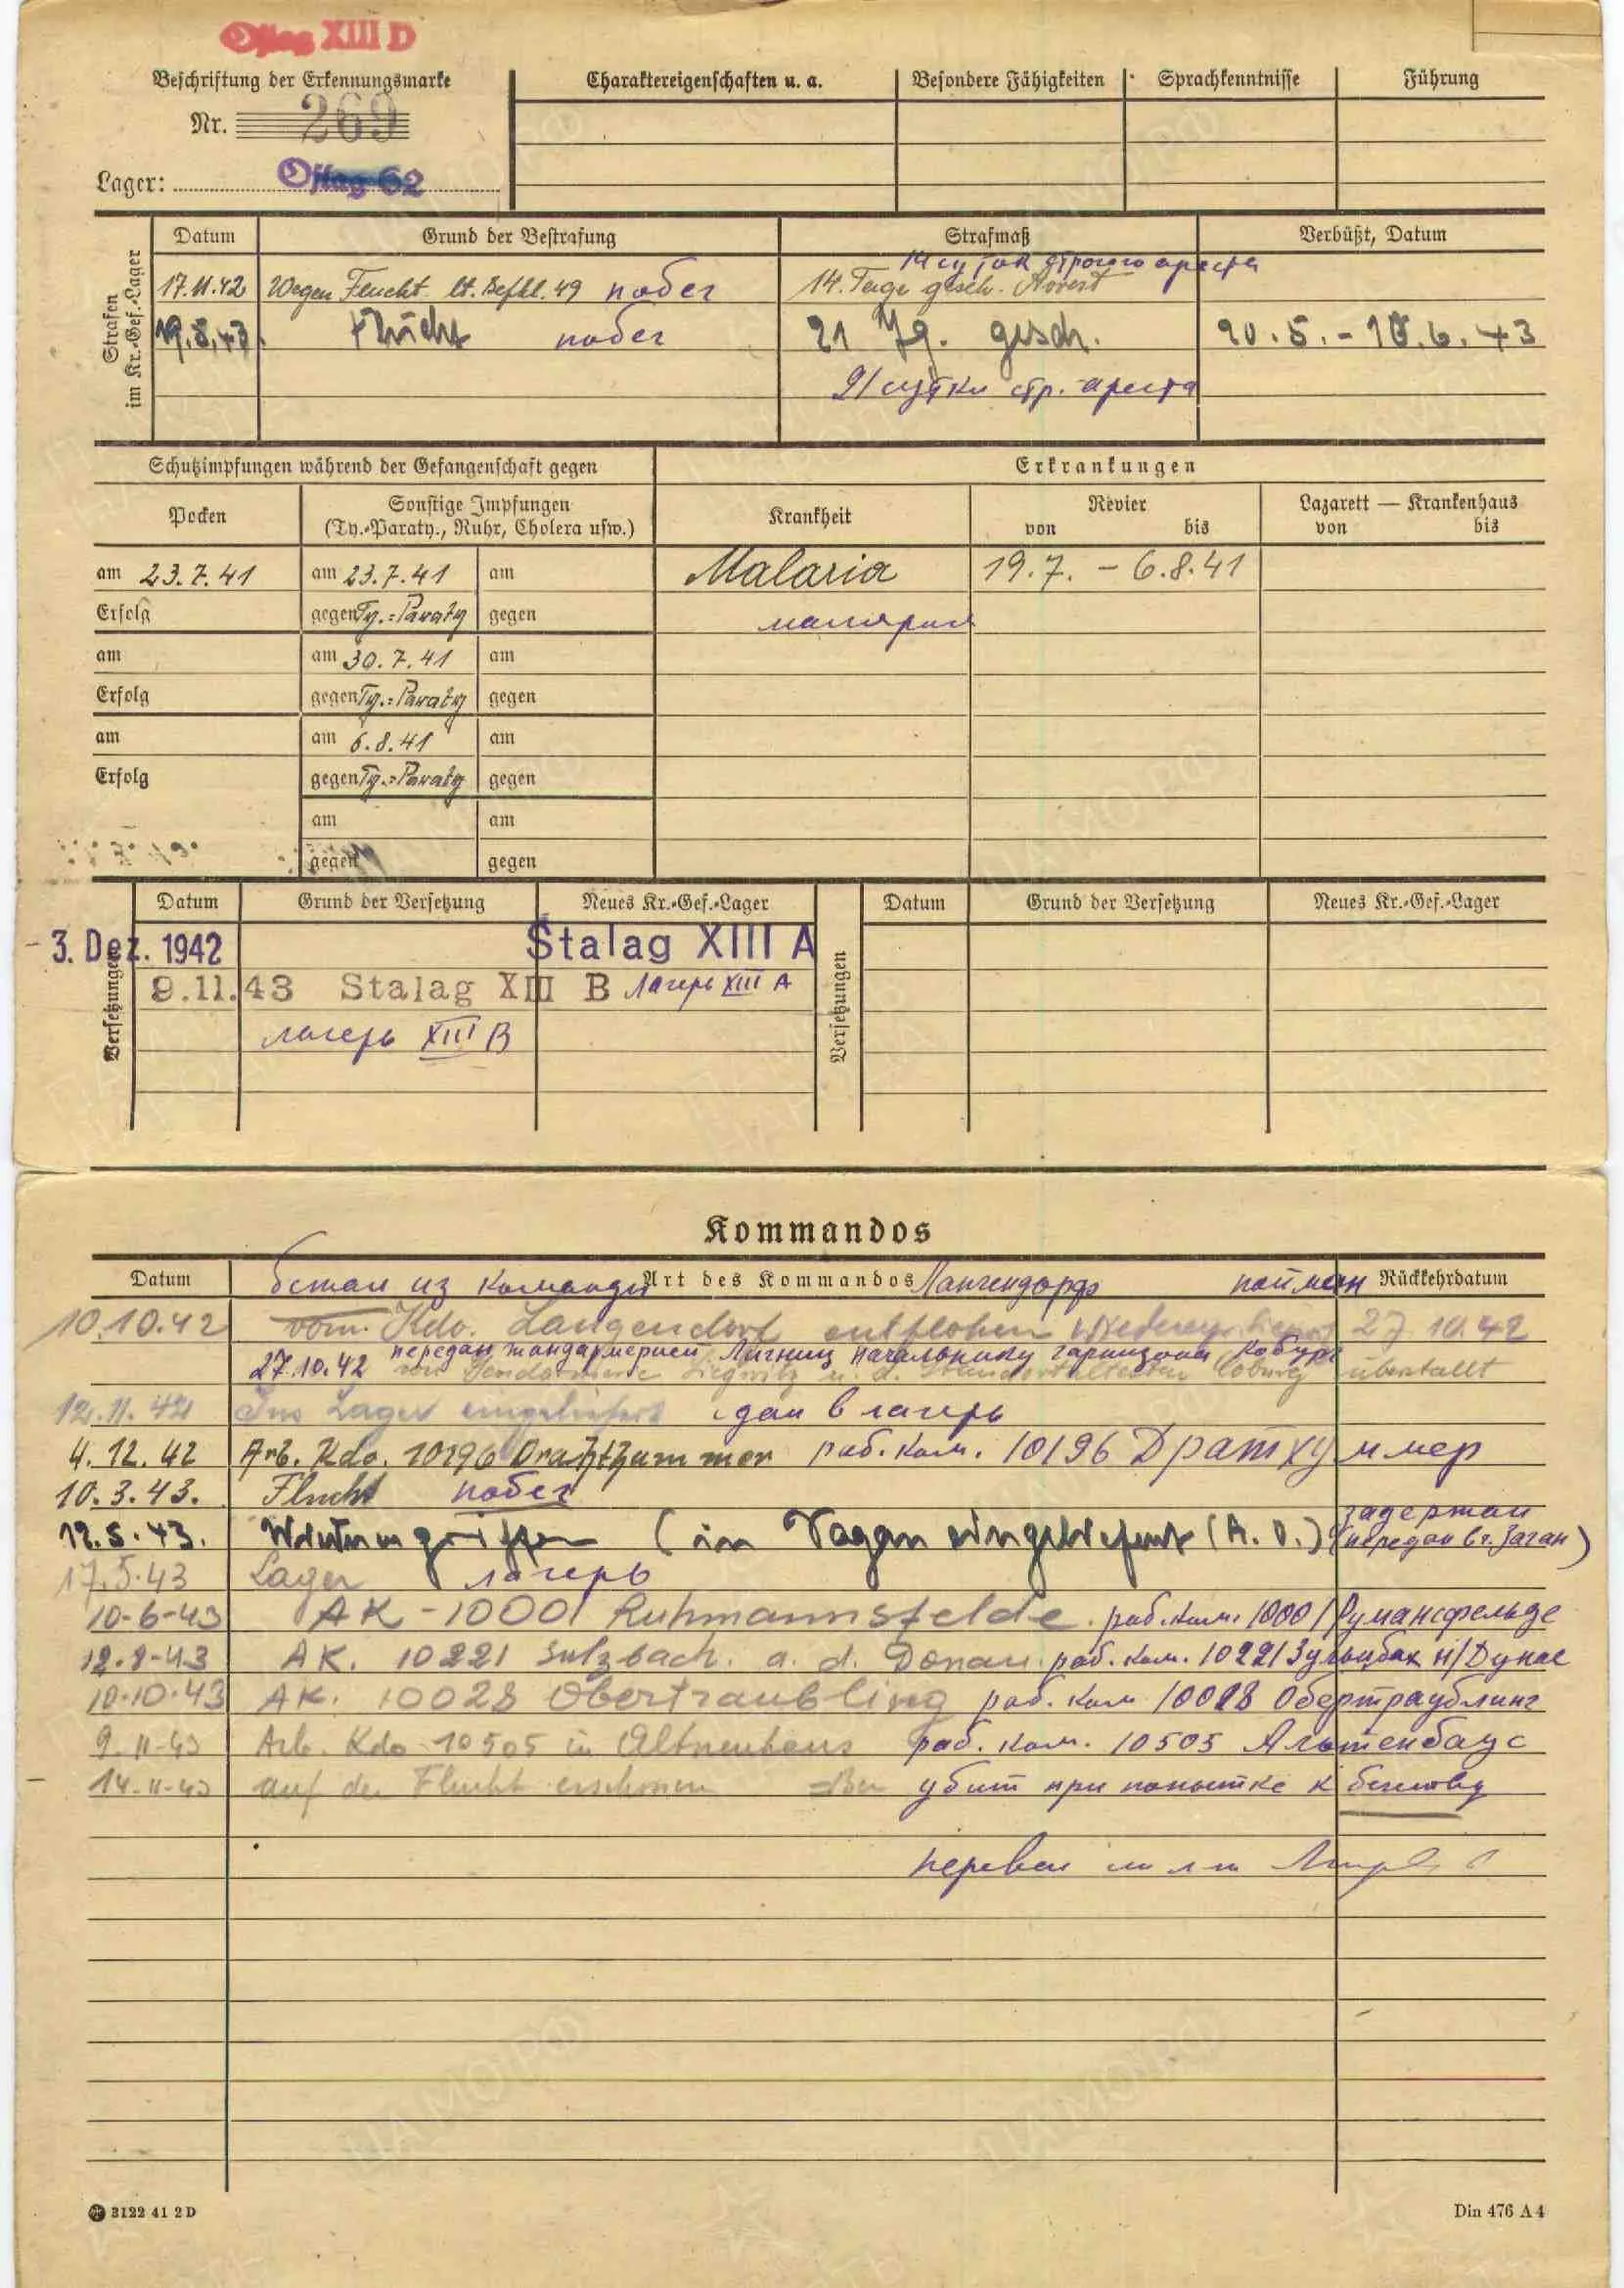 Oflag XIII D
Beschriftung der Erkennungsmarke
Nr. 269
Lager: Oflag 62
Charaktereigenschaften u. a.
Besondere Fähigkeiten
Sprachkenntnisse
Führung
Strafen im Kr.-Gef.-Lager
Datum
Grund der Bestrafung
Strafmaß
Verbüßt, Datum
14 суток строгого ареста
17.11.42 Wegen Flucht lt. Befhl. 49 побег 14. Tage gesch. Arrest
19.5.43. Flucht побег 21 Tg. gesch. 20.5.-10.6.43
21 сутки стр. ареста
Schutzimpfungen während der Gefangenschaft gegen
Erkrankungen
Pocken
Sonstige Impfungen
(Ty.-Paraty., Ruhr, Cholera usw.)
Krankheit
Revier
von bis
Lazarett — Krankenhaus
von bis
am 23.7.41 am 23.7.41 am Malaria 19.7. - 6.8.41
Erfolg gegen Ty.-Paraty gegen малярия
am am 30.7.41 am
Erfolg gegen Ty.-Paraty gegen
am am 6.8.41 am
Erfolg gegen Ty.-Paraty gegen
am am
gegen gegen
Versetzungen
Datum
Grund der Versetzung
Neues Kr.-Gef.-Lager
Versetzungen
Datum
Grund der Versetzung
Neues Kr.-Gef.-Lager
- 3. Dez. 1942 Stalag XIII A
9.11.43 Stalag XIII B лагерь XIII A
лагерь XIII B
Kommandos
Datum
Art des Kommandos
Rückkehrdatum
бежал из команды Лангендорф пойман
10.10.42 vom Kdo. Langendorf entflohen 27.10.42
передан жандармерией Лигниц начальнику гарнизона Кобург
27.10.42 von Liegnitz u. d. Standortältesten Coburg überstellt
12.11.42 Ins Lager eingeliefert сдан в лагерь
4.12.42 Arb. Kdo. 10196 Drahthammer раб. ком. 10196 Дратхуммер
10.3.43. Flucht побег
задержан
12.5.43. Wiederergriffen (in Sagan eingeliefert (A.O.) (передан в г. Заган)
17.5.43 Lager лагерь
10-6-43 AK-10001 Ruhmannsfelde раб. ком. 10001 Румансфельде
12.8-43 AK. 10221 Sulzbach. a. d. Donau раб. ком. 10221 Зульцбах н/Дунае
10-10-43 AK. 10028 Obertraubling раб. ком 10028 Обертраублинг
9.11-43 Arb. Kdo 10505 in Altneuhaus раб. ком. 10505
14-11-43 auf der Flucht erschossen убит при попытке к бегству
3122 41 2 D
Din 476 A 4